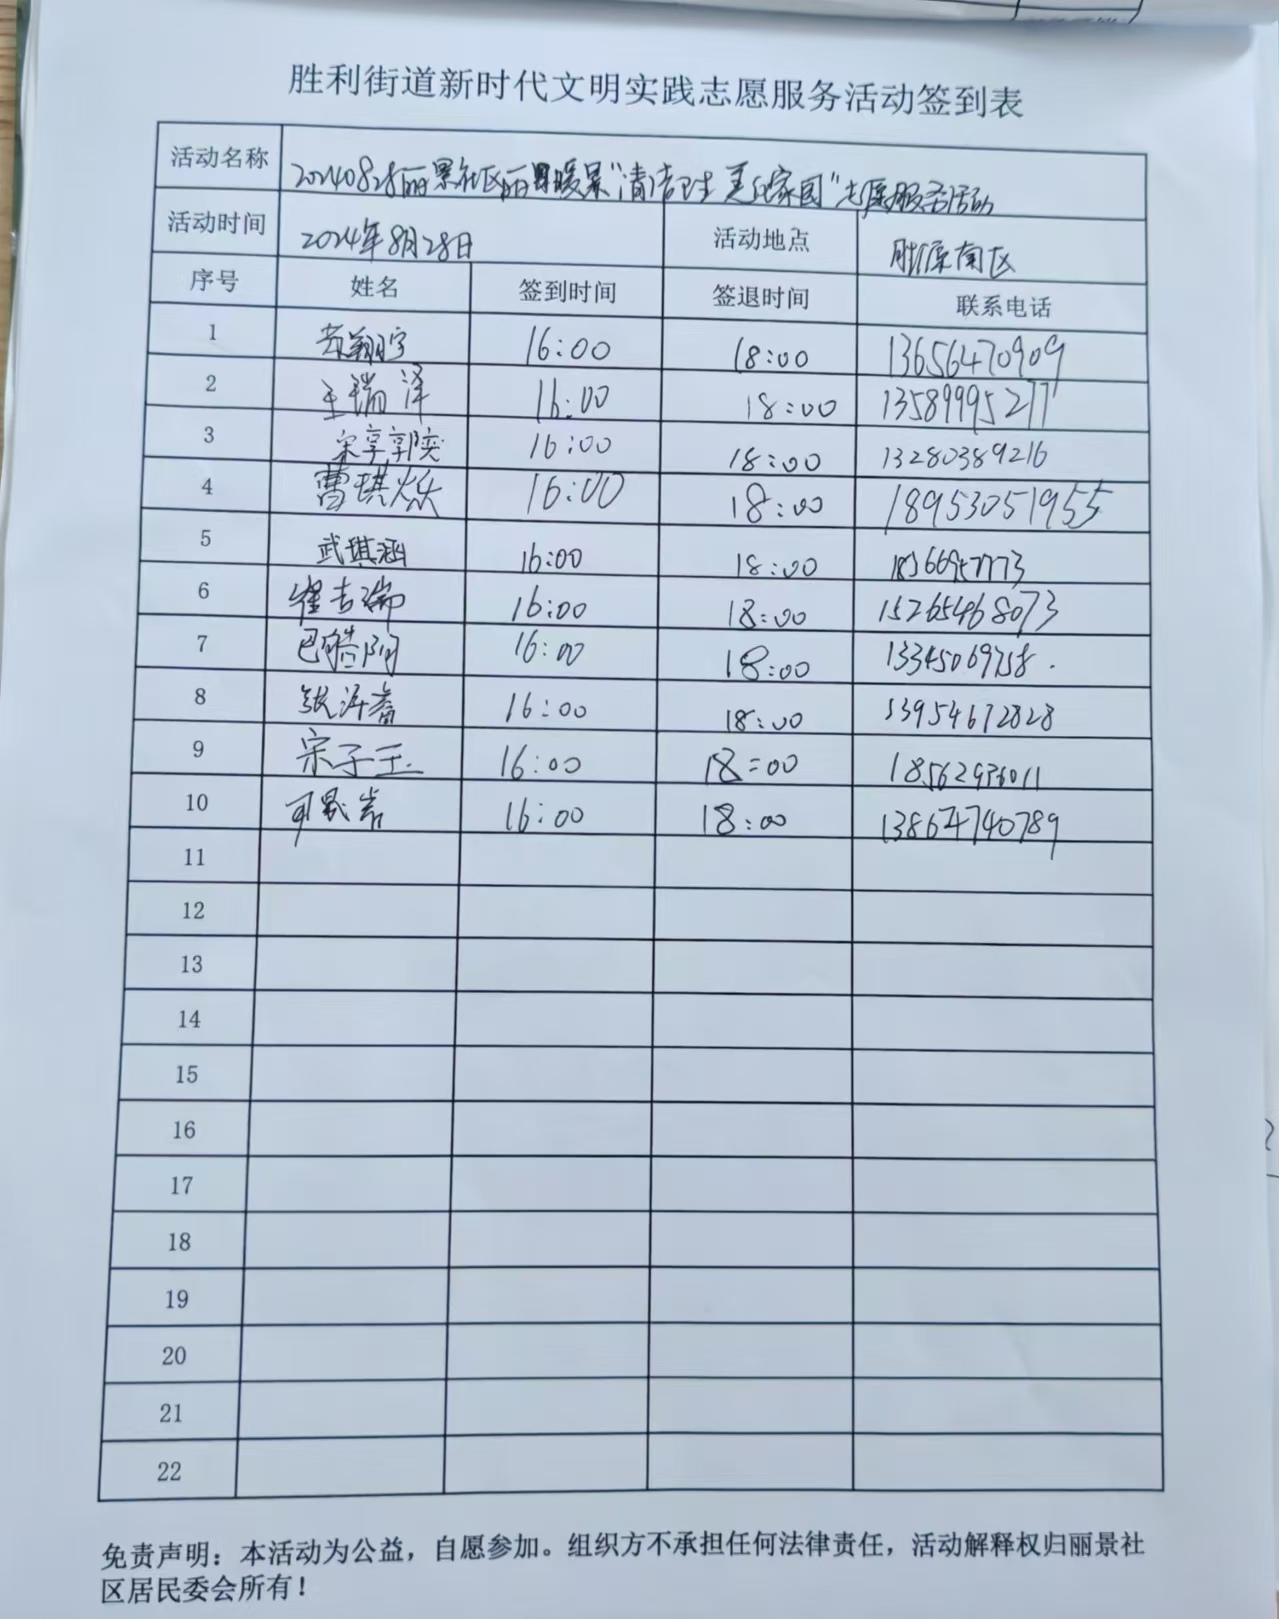 胜利街道新时代文明实践志愿服务活动签到表
活动名称 20240828丽景社区丽日暖景"清洁卫生 美化家园"志愿服务活动
活动时间 2024年8月28日 活动地点 胜原南区
序号 姓名 签到时间 签退时间 联系电话
1 翔宇 16:00 18:00 13656470909
2 王瑞泽 16:00 18:00 13589995277
3 宋享郭奕 16:00 18:00 13280389216
4 曹琪焱 16:00 18:00 18953051955
5 武琪涵 16:00 18:00
6 崔吉瑞 16:00 18:00 15265468073
7 巴皓阳 16:00 18:00 13345069758
8 张泽睿 16:00 18:00 13954672828
9 宋子玉 16:00 18:00 18562936011
10 16:00 18:00 13864740789
11
12
13
14
15
16
17
18
19
20
21
22
免责声明：本活动为公益，自愿参加。组织方不承担任何法律责任，活动解释权归丽景社
区居民委会所有！